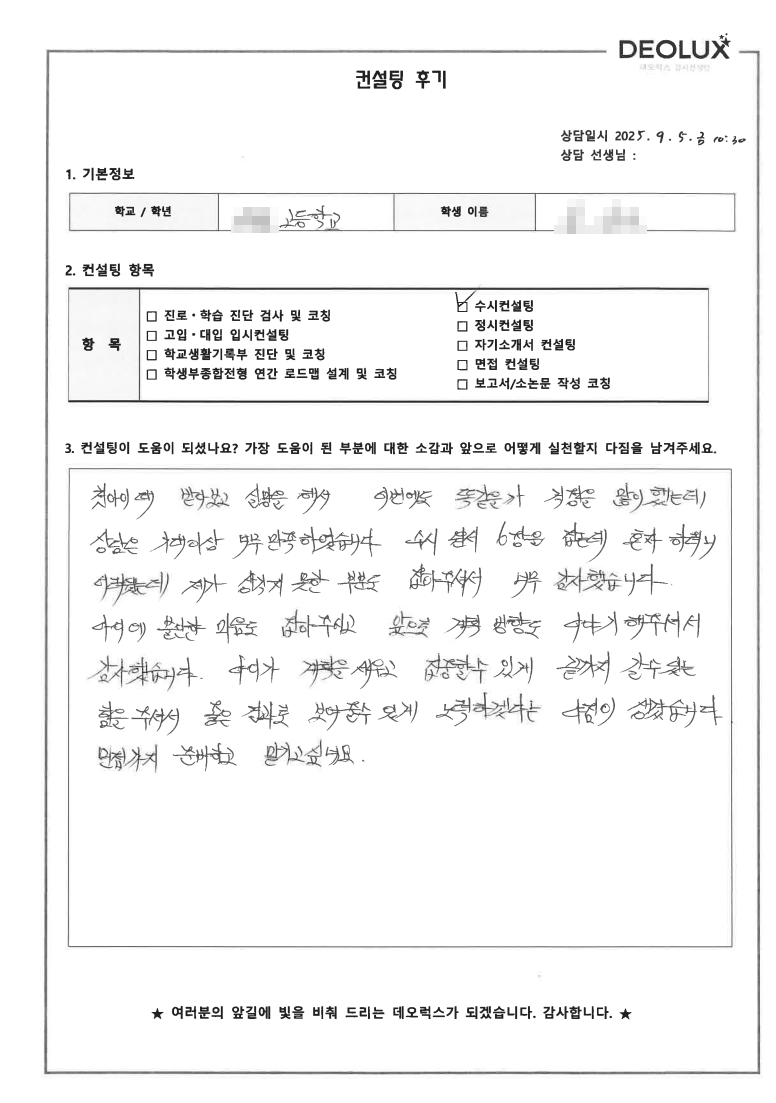 DEOLUX
데오럭스 입시컨설팅
컨설팅 후기
상담일시 2025. 9. 5. 금 10:30
상담 선생님 :
1. 기본정보
학교 / 학년 고등학교 학생 이름
2. 컨설팅 항목
항 목
□ 진로·학습 진단 검사 및 코칭
□ 고입·대입 입시컨설팅
□ 학교생활기록부 진단 및 코칭
□ 학생부종합전형 연간 로드맵 설계 및 코칭
☑ 수시컨설팅
□ 정시컨설팅
□ 자기소개서 컨설팅
□ 면접 컨설팅
□ 보고서/소논문 작성 코칭
3. 컨설팅이 도움이 되셨나요? 가장 도움이 된 부분에 대한 소감과 앞으로 어떻게 실천할지 다짐을 남겨주세요.
첫아이 때 받아보고 실망을 해서 이번에도 똑같을가 걱정을 많이 했는데
상담은 기대이상 너무 만족하였습니다 수시 원서 6장을 잡는데 혼자 하려니
어려웠는데 제가 생각지 못한 부분도 잡아주셔서 너무 감사했습니다.
아이에 불안한 마음도 잡아주시고 앞으로 계획 방향도 이야기 해주셔서
감사했습니다. 아이가 계획을 세우고 집중할수 있게 끝까지 갈수있는
힘을 주셔서 좋은 결과로 보여줄수 있게 노력하겠다는 다짐이 생겼습니다
면접까지 준비하고 맡기고싶네요.
★ 여러분의 앞길에 빛을 비춰 드리는 데오럭스가 되겠습니다. 감사합니다. ★